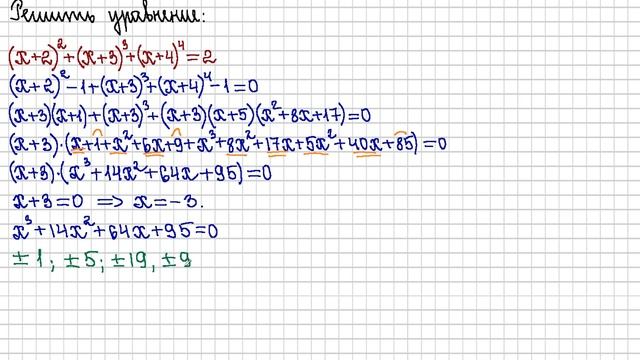 Решить уравнение:
(x+2)²+(x+3)³+(x+4)⁴=2
(x+2)²-1+(x+3)³+(x+4)⁴-1=0
(x+3)(x+1)+(x+3)³+(x+3)(x+5)(x²+8x+17)=0
(x+3)·(x+1+x²+6x+9+x³+8x²+17x+5x²+40x+85)=0
(x+3)·(x³+14x²+64x+95)=0
x+3=0 ⟹ x=-3.
x³+14x²+64x+95=0
±1; ±5; ±19, ±9